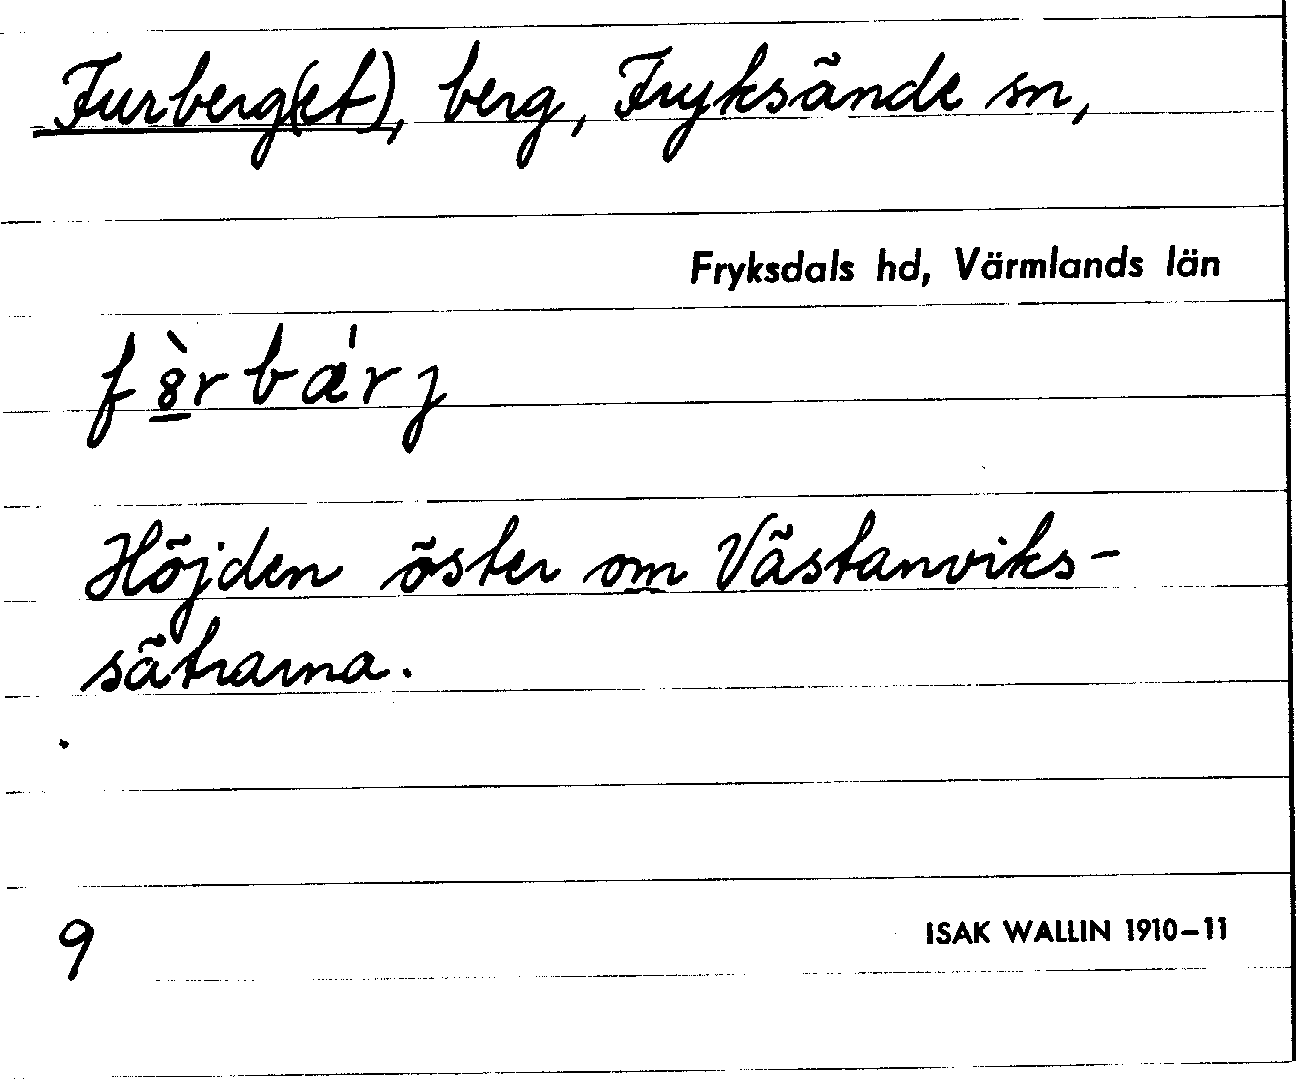 Furberg(et), berg, Fryksände sn,
Fryksdals hd, Värmlands län
f8̱̀rbæ̍rj
Höjden öster om Västanviks-
sätrarna.
9
ISAK WALLIN 1910-11